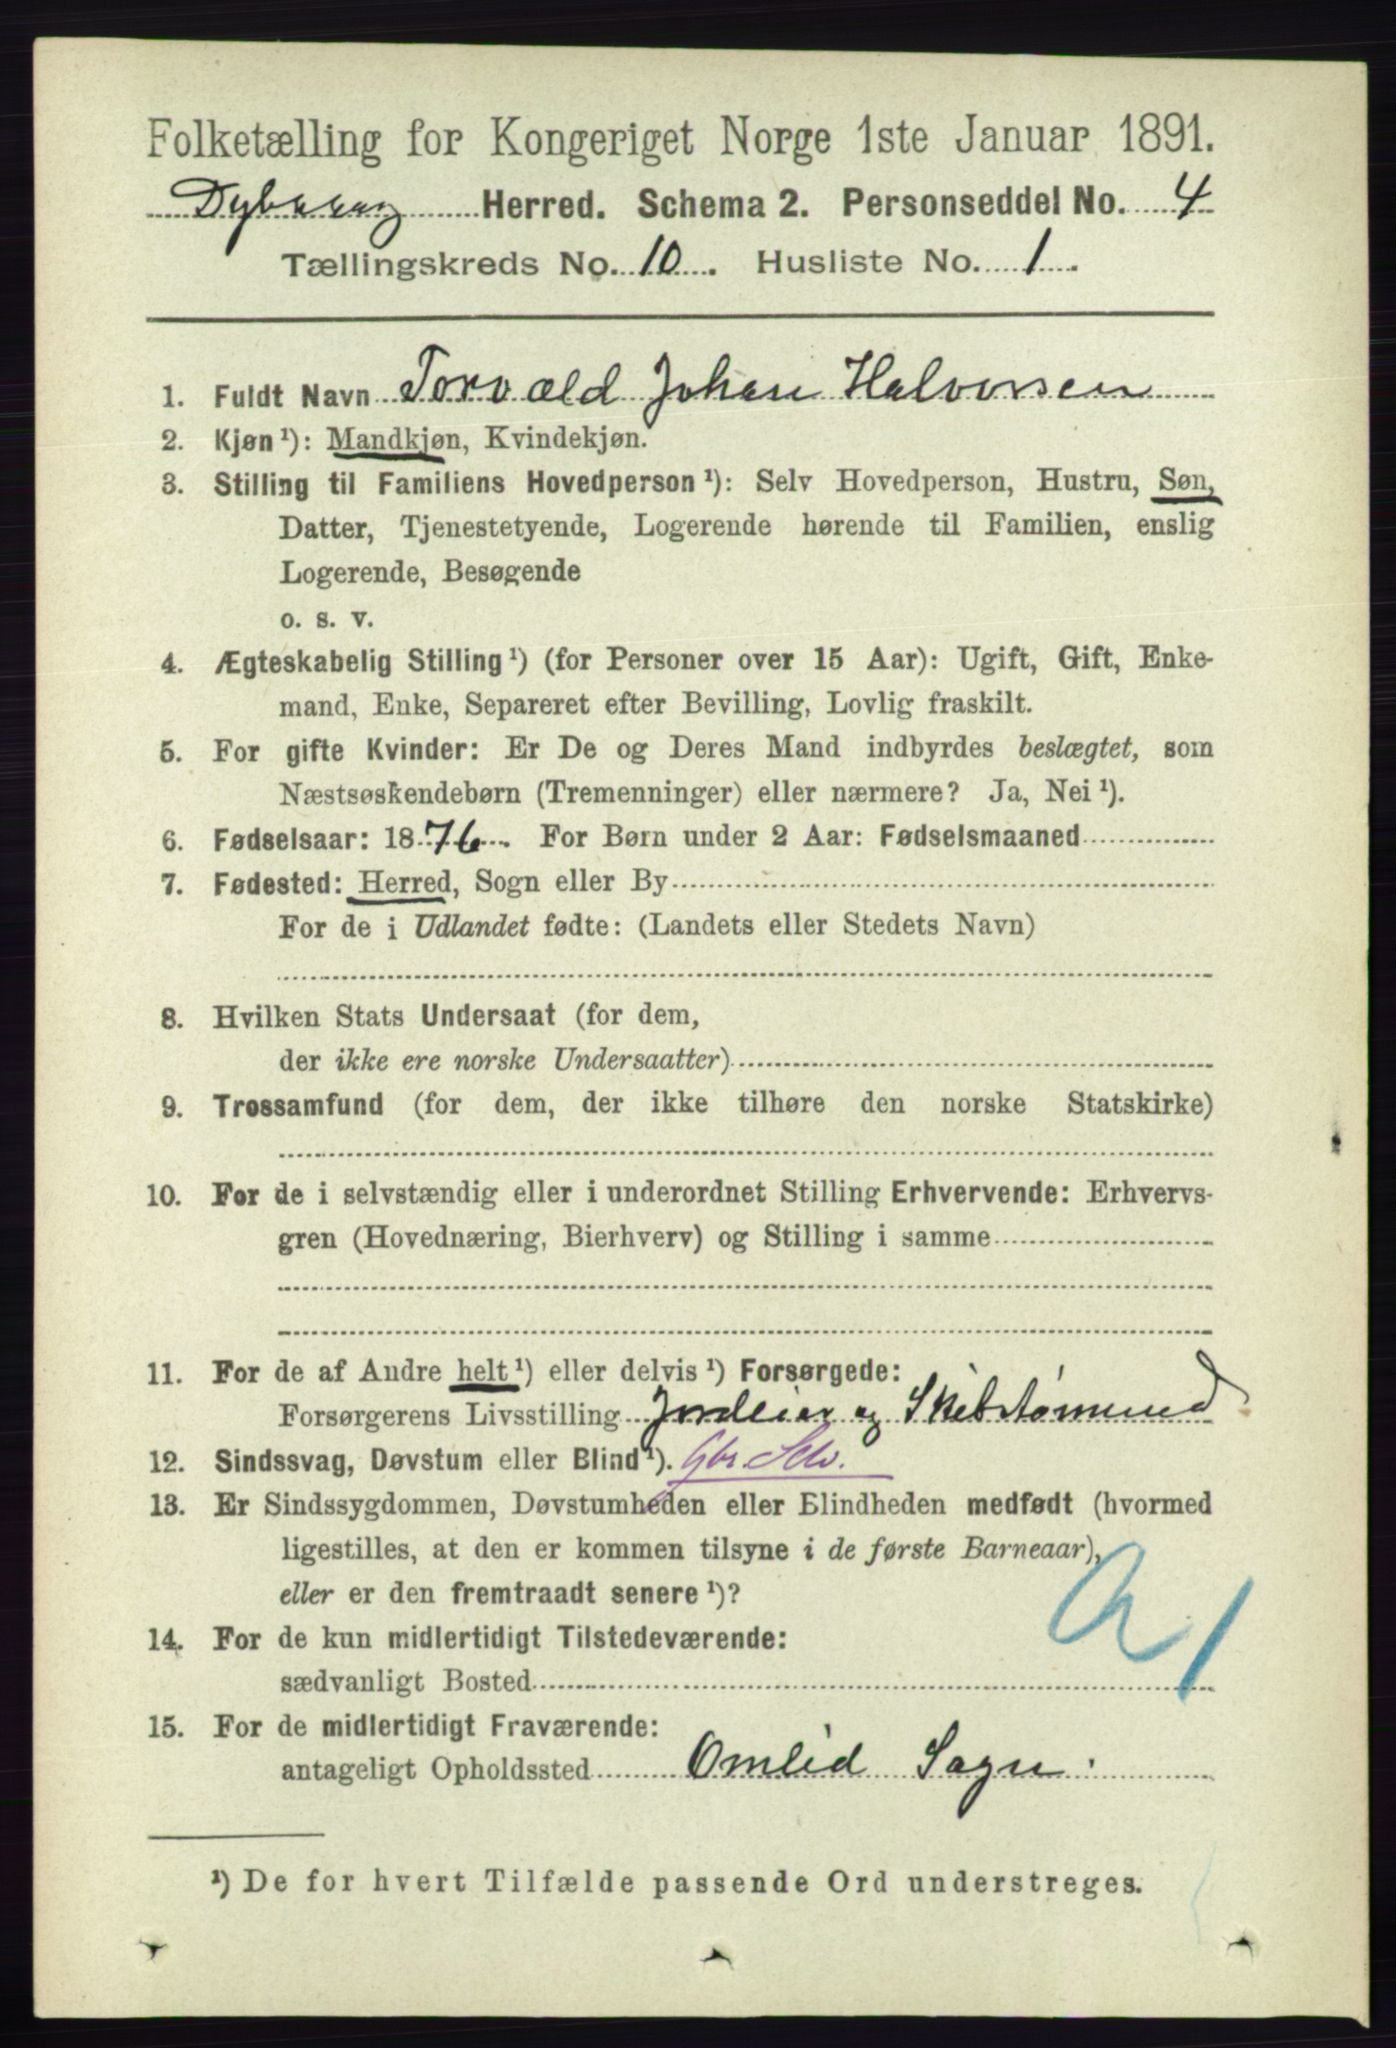 Folketælling for Kongeriget Norge 1ste Januar 1891.
Dybvaag Herred. Schema 2. Personseddel No. 4
Tællingskreds No. 10. Husliste No. 1.
1. Fuldt Navn Torvald Johan Halvorsen
2. Kjøn¹): Mandkjøn, Kvindekjøn.
3. Stilling til Familiens Hovedperson¹): Selv Hovedperson, Hustru, Søn,
Datter, Tjenestetyende, Logerende hørende til Familien, enslig
Logerende, Besøgende
o. s. v.
4. Ægteskabelig Stilling¹) (for Personer over 15 Aar): Ugift, Gift, Enke-
mand, Enke, Separeret efter Bevilling, Lovlig fraskilt.
5. For gifte Kvinder: Er De og Deres Mand indbyrdes beslægtet, som
Næstsøskendebørn (Tremenninger) eller nærmere? Ja, Nei¹).
6. Fødselsaar: 1876. For Børn under 2 Aar: Fødselsmaaned
7. Fødested: Herred, Sogn eller By
For de i Udlandet fødte: (Landets eller Stedets Navn)
8. Hvilken Stats Undersaat (for dem,
der ikke ere norske Undersaatter)
9. Trossamfund (for dem, der ikke tilhøre den norske Statskirke)
10. For de i selvstændig eller i underordnet Stilling Erhvervende: Erhvervs-
gren (Hovednæring, Bierhverv) og Stilling i samme
11. For de af Andre helt¹) eller delvis¹) Forsørgede:
Forsørgerens Livsstilling Jordeier og Skibstømmermd
12. Sindssvag, Døvstum eller Blind¹). Gbr. Selv.
13. Er Sindssygdommen, Døvstumheden eller Blindheden medfødt (hvormed
ligestilles, at den er kommen tilsyne i de første Barneaar),
eller er den fremtraadt senere¹)?
14. For de kun midlertidigt Tilstedeværende:
sædvanligt Bosted
15. For de midlertidigt Fraværende:
antageligt Opholdssted Omlid Sogn.
¹) De for hvert Tilfælde passende Ord understreges.